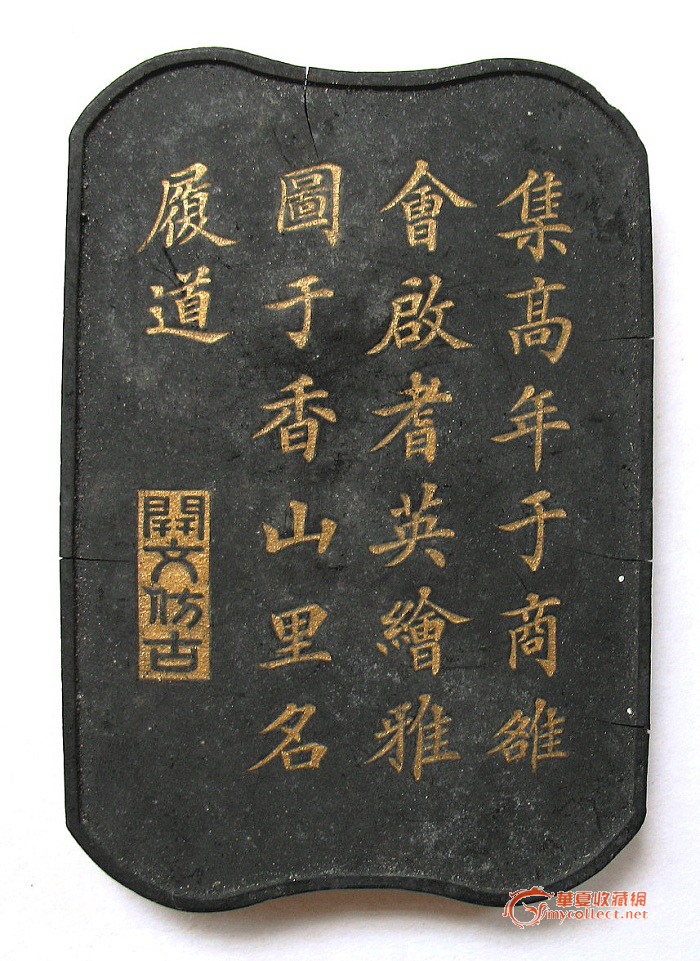 集高年于商雒
會啟耆英繪雅
圖于香山里名
履道
開文仿古
華夏收藏網
mycollect.net